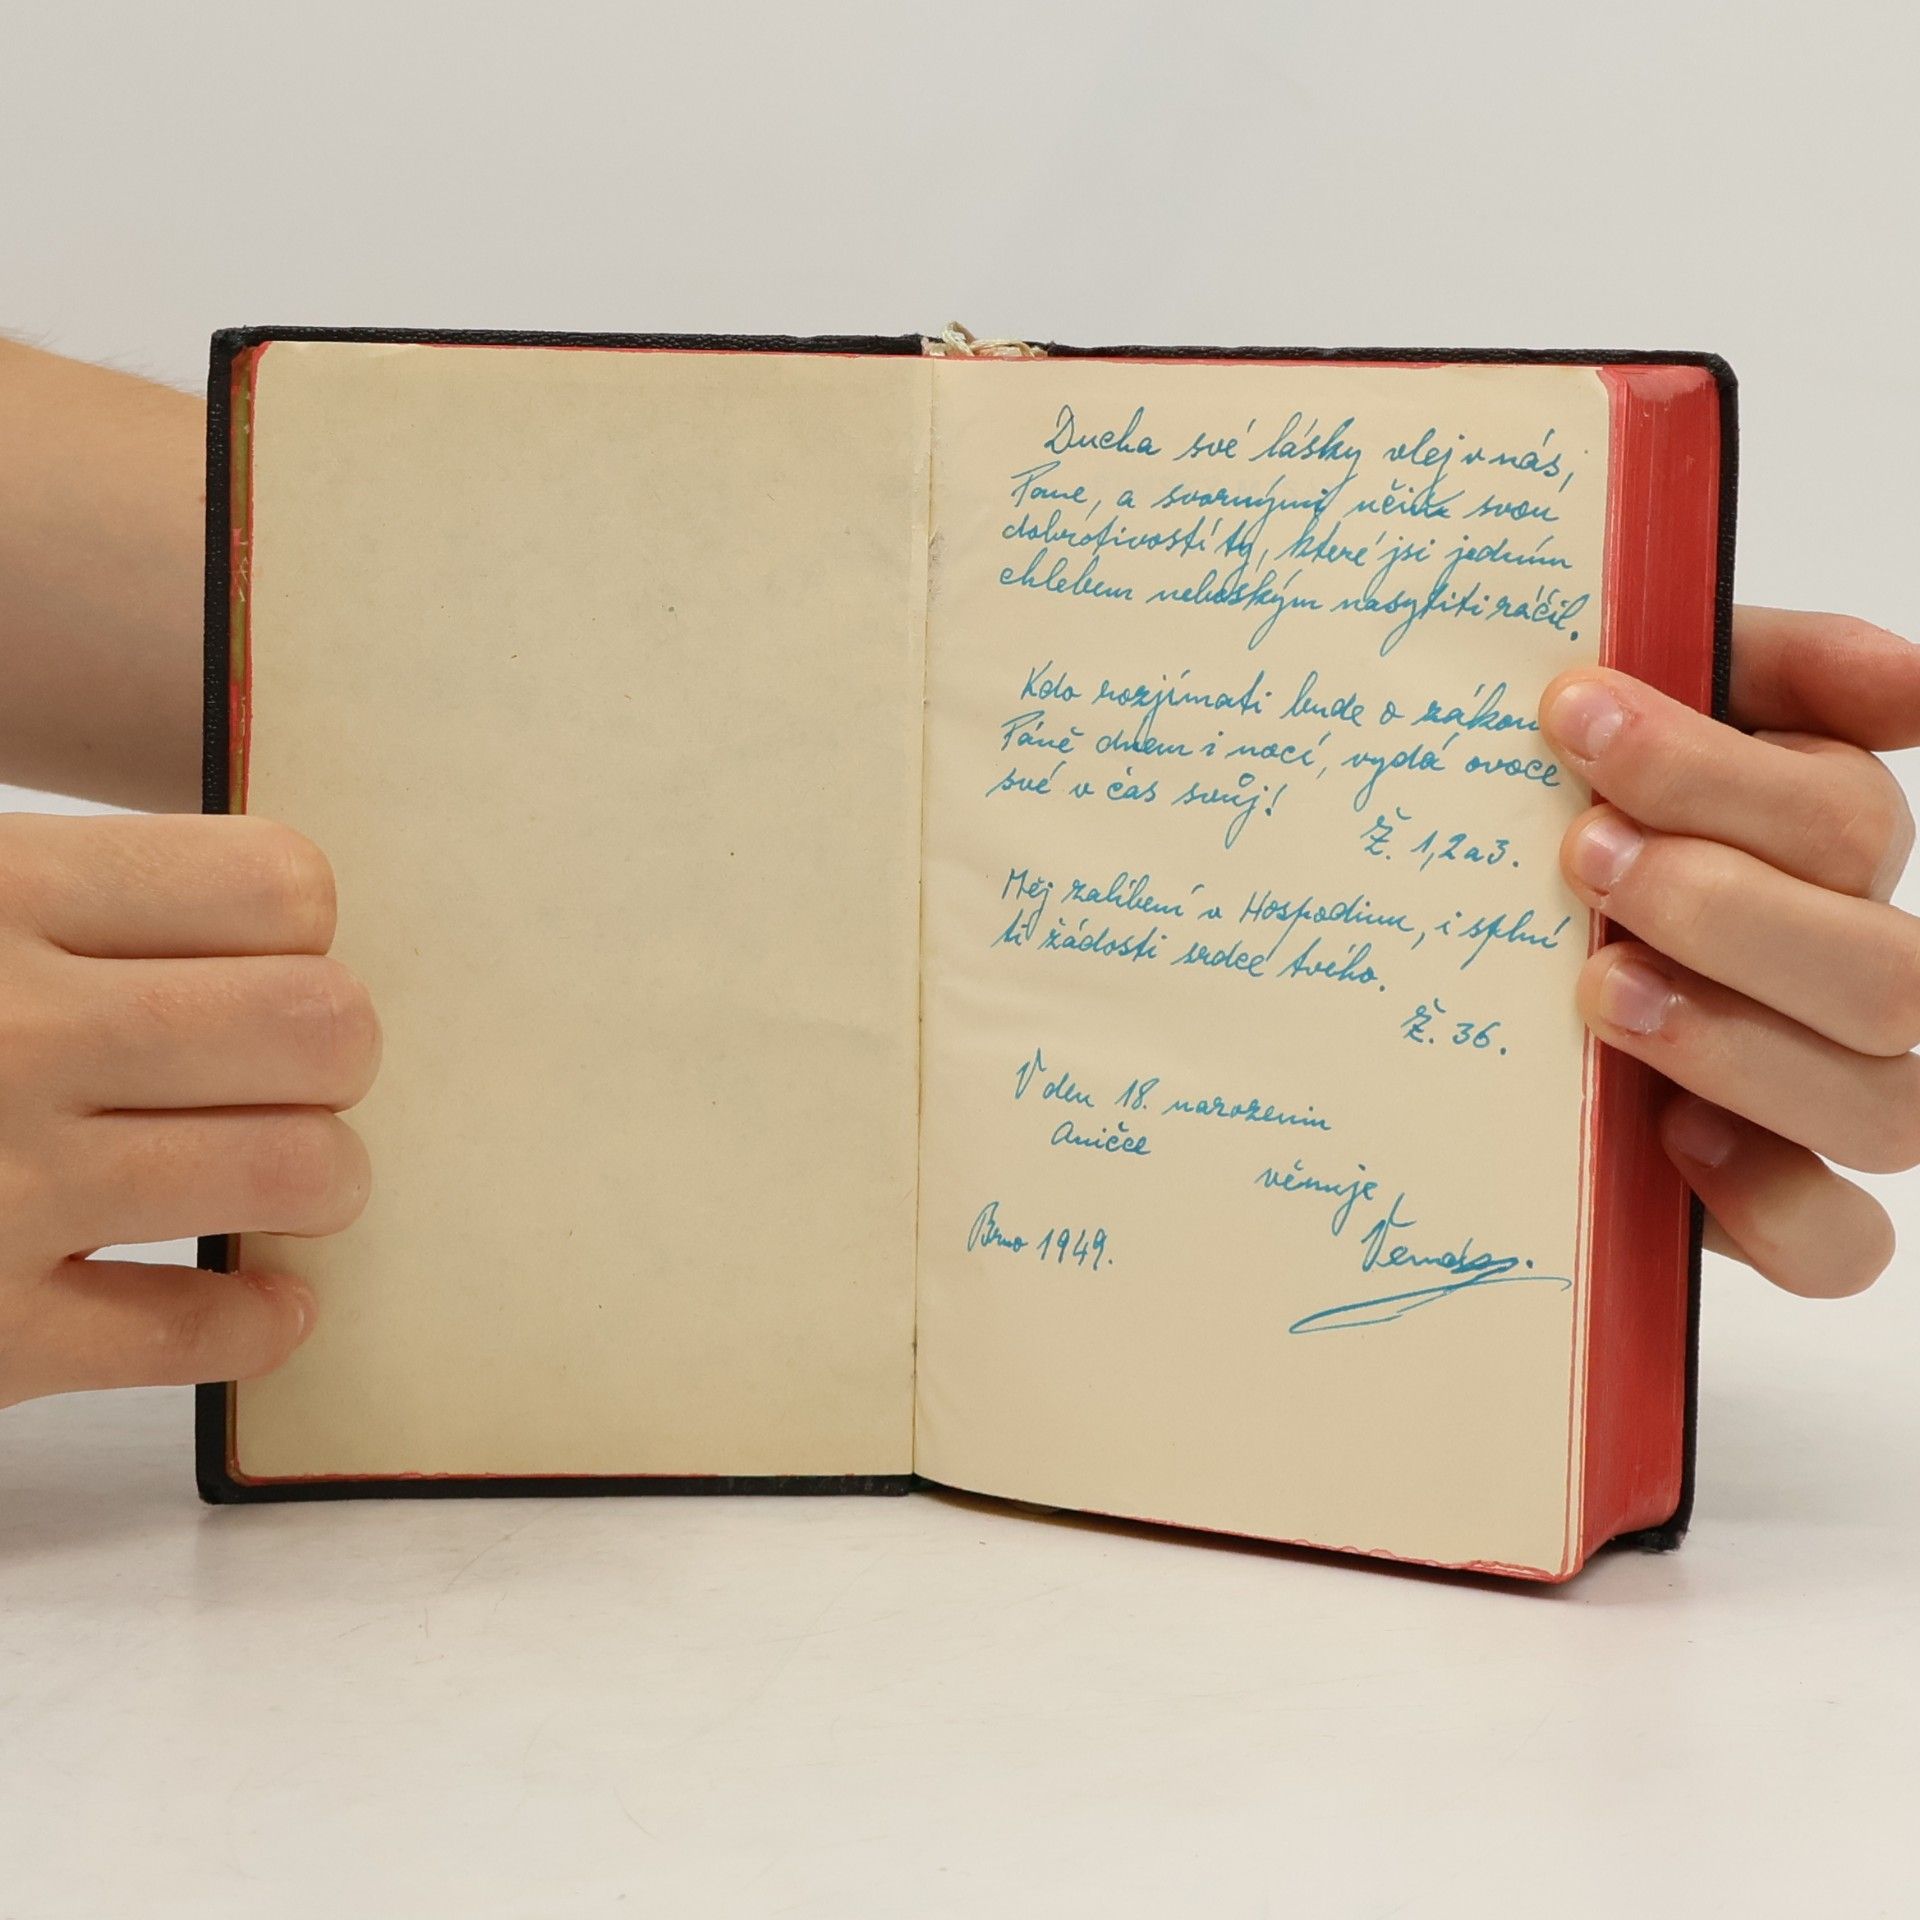 Ducha své lásky vlej v nás,
Pane, a svornými učiň svou
dobrotivostí ty, které jsi jedním
chlebem nebeským nasytiti ráčil.
Kdo rozjímati bude o zákonu
Páně dnem i nocí, vydá ovoce
své v čas svůj!
Ž. 1,2a3.
Měj zalíbení v Hospodinu, i splní
ti žádosti srdce tvého.
Ž. 36.
V den 18. narozenin
Aničce
věnuje
Brno 1949.